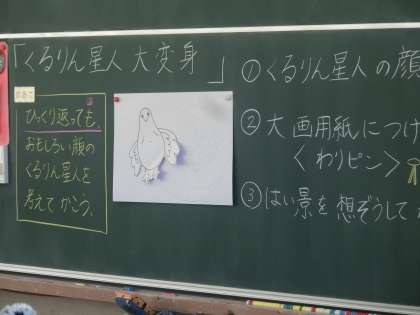 「くるりん星人 大変身 」
めあて
ひっくり返っても、
おもしろい顔の
くるりん星人を
考えてかこう。
①くるりん星人の顔
②大画用紙につけ
〈わりピン〉
③はい景を想ぞうして